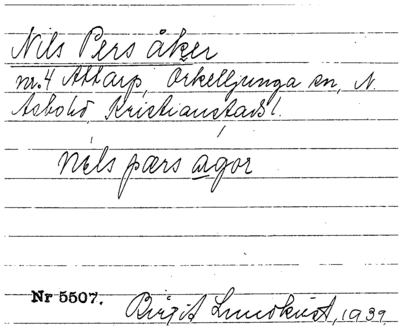 Nils Pers åker
nr.4 Attarp, Örkelljunga sn, N.
Åsbohd, Kristianstads l.
nils pærs agor
Nr 5507.
Birgit Lundkvist, 1939.